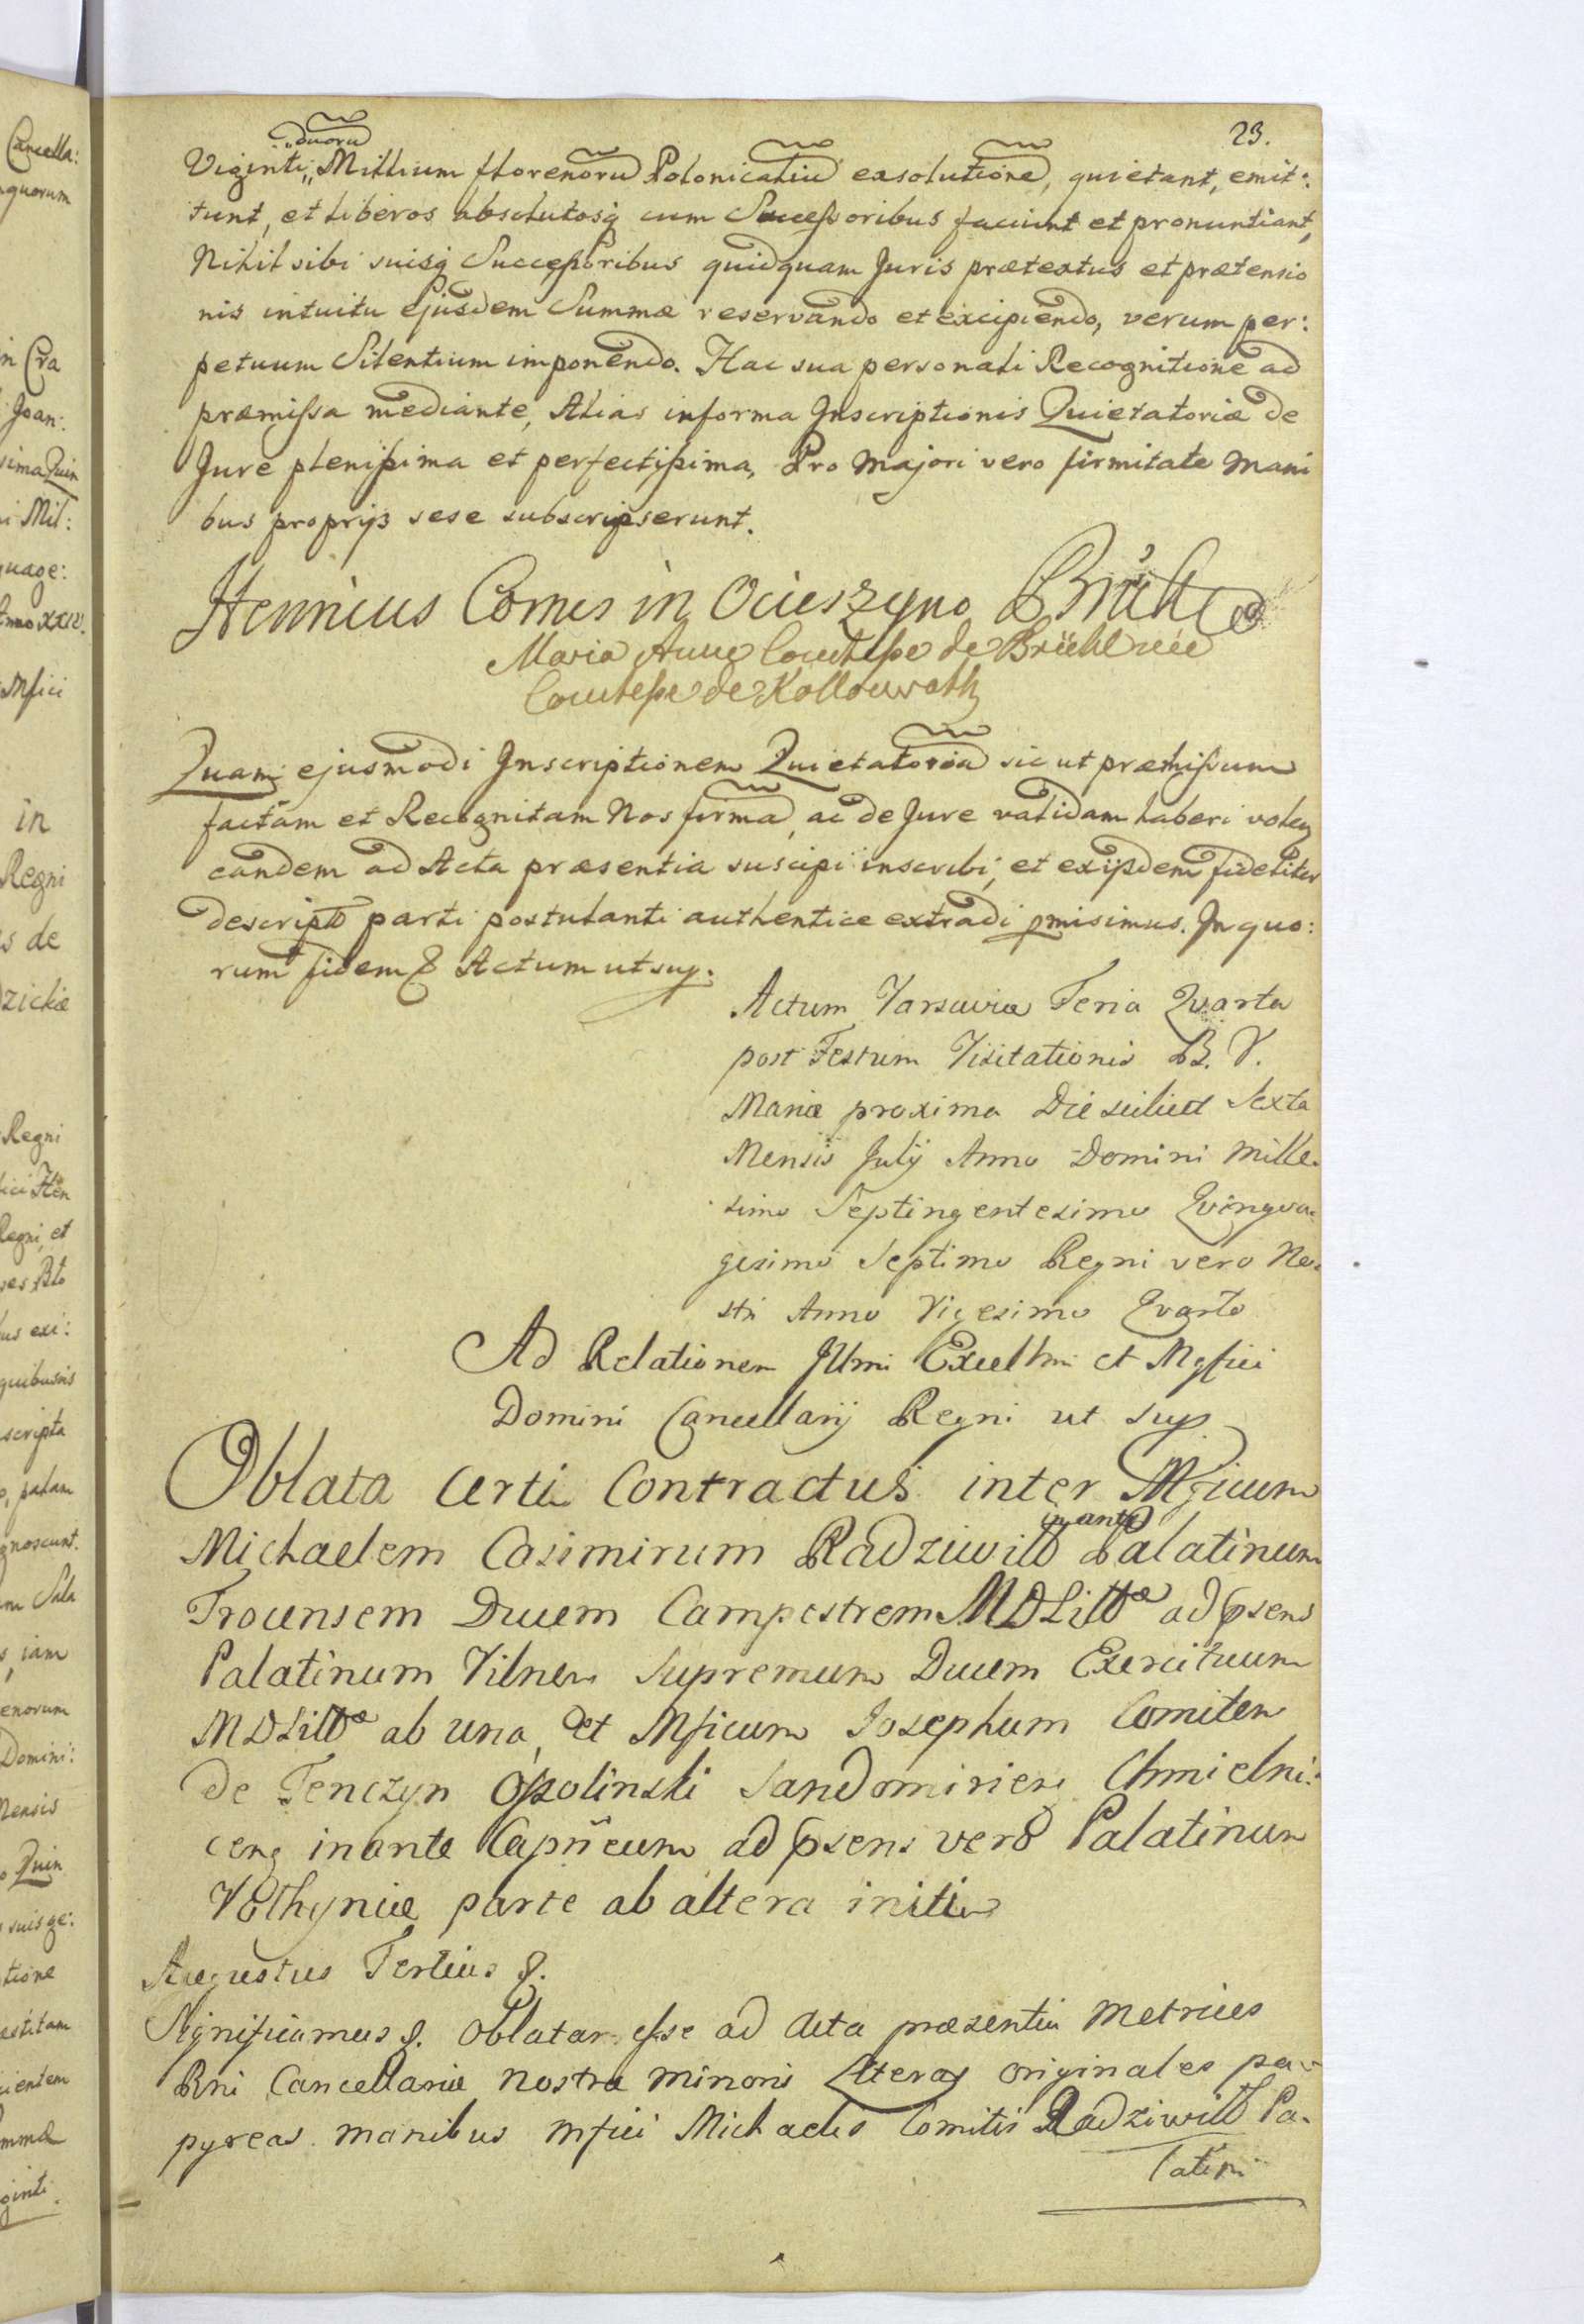 23.
duorū
Viginti,, Millium florenorū Polonicaliū exsolutione, quietant, emit:
tunt, et liberos absolutosq cum Successoribus faciunt et pronuntiant,
Nihil sibi suisq Successoribus quidquam Juris prætextus et prætensio
nis intuitu Ejusdem Summæ reservando et excipiendo, verum per:
petuum Silentium imponendo. Hac sua personali Recognitione ad
præmissa mediante, Alias informa Inscriptionis Quietatoriæ de
Jure plenissima et perfectissima, Pro majori vero firmitate mani
bus proprijs sese subscripserunt.
Henricus Comes in Ocieszyno Brühl
Maria Anne Comtesse de Brühl née
Comtesse de Kollowrath
Quam ejusmodi Inscriptionem Quietatoriā sic ut præmissum
factam et Recognitam Nos firmā, ac de Jure validam haberi volen
eandem ad Acta præsentia suscipi inscribi, et exijsdem fideliter
descriptā parti postulanti authentice extradi pmisimus. In quo:
rum fidem & Actum ut sup.
Actum Varsaviæ Feria Qvarta
post Festum Visitationis B. V.
Mariæ proxima Die scilicet Sexta
Mensis Julÿ Anno Domini Mille.
simo Septingentesimo Qvinqva.
gesimo Septimo Regni vero No.
stri Anno Vigesimo Qvarto
Ad Relationem Illmi Excellmi et Mgfici
Domini Cancellarÿ Regni ut sup
Oblata Certi Contractus inter Mficum
Michaelem Casimirum Radziwiłł in ante Palatinum
Trocensem Ducem Campestrem MDLittæ ad psens
Palatinum Vilnen Supremum Ducem Exercituum
MDLittæ ab una, et Mficum Josephum Comitem
de Tenczyn Ossolinski Sandomirien Chmielni:
cens inante Capneum ad psens vero Palatinum
Volhyniæ parte ab altera initi
Augustus Tertius &.
Significamus &. Oblatas esse ad Acta præsentia Metrices
Rni Cancellariæ Nostræ minoris Literas originales pa
pyreas manibus mfici Michaelis Comitis Radziwiłł Pa.
latini